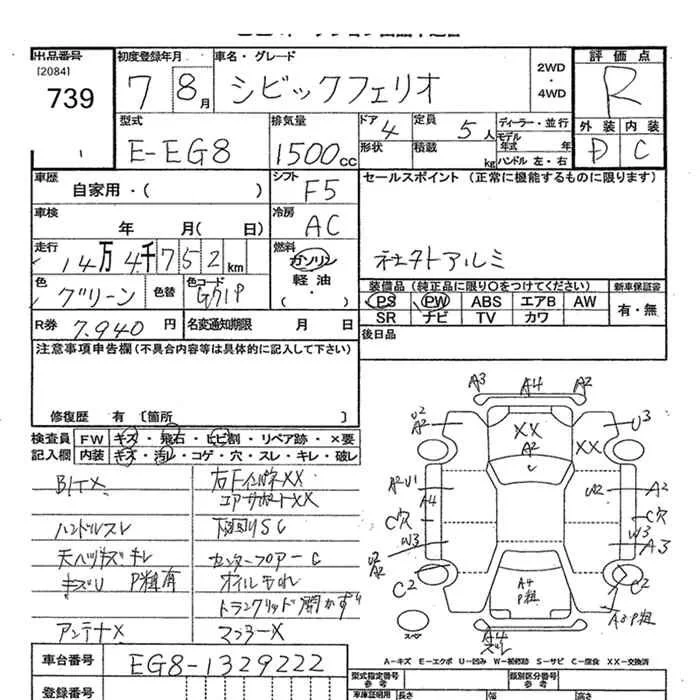 出品番号
[2084]
739
初度登録年月
7 8月
車名・グレード
シビックフェリオ
2WD
・
4WD
評価点
R
外装 内装
D C
型式
E-EG8
排気量
1500cc
ドア 4
形状
定員 5人
積載 kg
ディーラー・並行
モデル年式 年
ハンドル 左・右
車歴
自家用・( )
シフト
F5
セールスポイント (正常に機能するものに限ります)
社外アルミ
車検
年 月( 日)
冷房
AC
走行
14万4千752km
燃料
ガソリン
軽油
・
色
グリーン
色替
色コード
G71P
装備品(純正品に限り○をつけてください)
PS PW ABS エアB AW
SR ナビ TV カワ
新車保証書
有・無
R券 7.940円
名変通知期限 月 日
後日品
注意事項申告欄(不具合内容等は具体的に記入して下さい)
修復歴 有 [箇所 ]
検査員 FW キズ・飛石・ヒビ割・リペア跡・×要
記入欄 内装 キズ・汚レ・コゲ・穴・スレ・キレ・破レ
右FインパネXX
エアサポートXX
ハンドルスレ
下回りSC
キズU P粗有
センターフロアーC
オイルもれ
トランクリッド開かず
アンテナX
マフラーX
A3 A4 A2
U2
A2
XX
A2
XX
U3
A2U1
A4
U2
A2
C穴
C穴
W3
W3
A3
U2
A2
C2
C2
A4
P粗
A3P粗
A4
スペア
A-キズ E-エクボ U-凹み W-補修跡 S-サビ C-腐食 XX-交換済
車台番号
EG8-1329222
登録番号
型式指定番号
参考
類別区分番号
参考
車庫証明用
長さ
幅
高さ